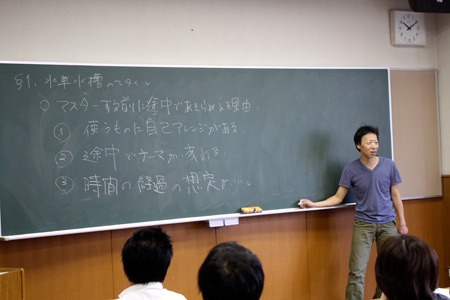 §1. 水草水槽のスタイル
○ マスターする前に途中であきらめる理由.
① 使うものに自己アレンジがある
② 途中でテーマが変わる.
③ 時間の経過の想定が…。